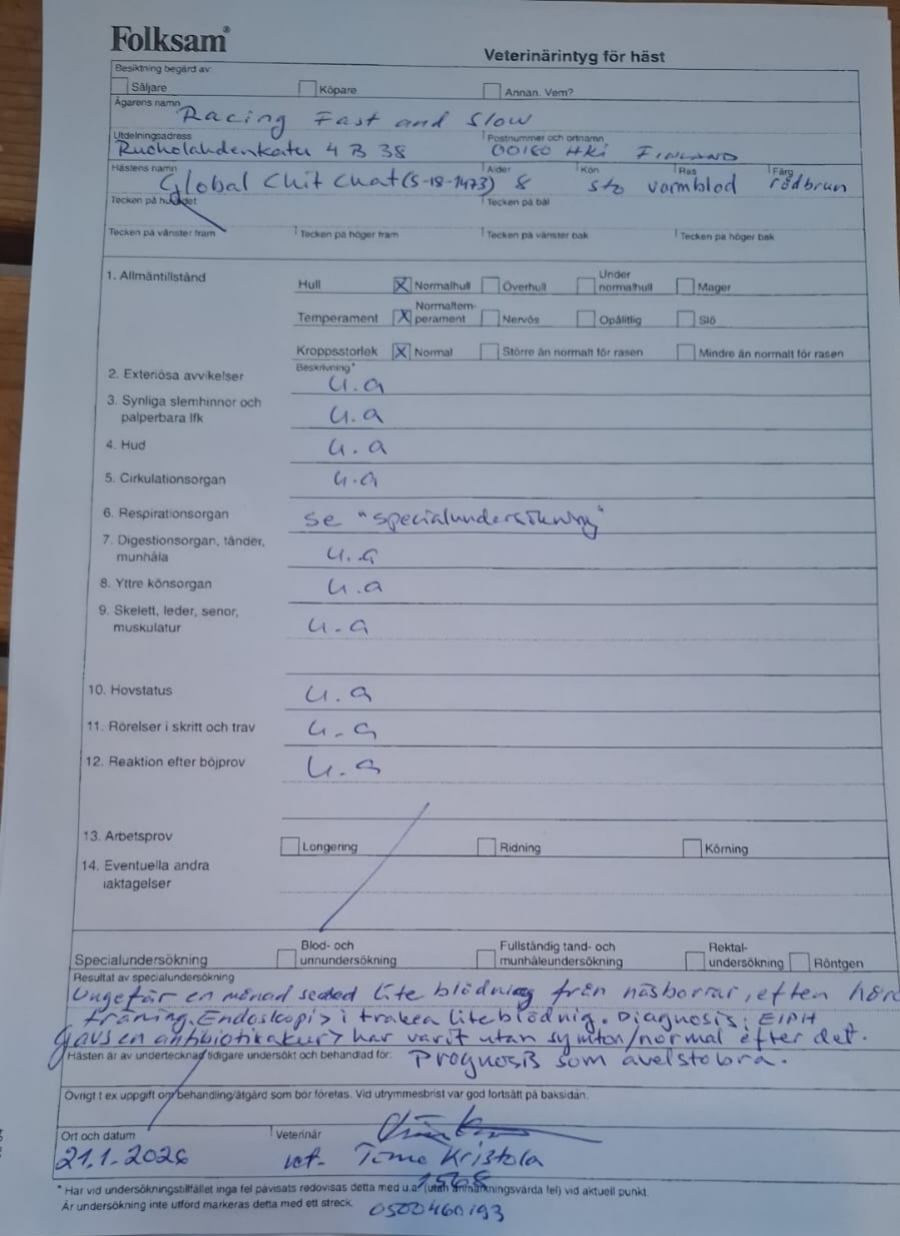 Folksam®
Veterinärintyg för häst
Besiktning begärd av:
Säljare Köpare Annan. Vem?
Ägarens namn
Racing Fast and Slow
Utdelningsadress Postnummer och ortnamn
Ruoholahdenkatu 4 B 38 00180 HKi FINLAND
Hästens namn Ålder Kön Ras Färg
Global Chit Chat (S-18-1473) 8 sto varmblod rödbrun
Tecken på huvudet Tecken på bål
Tecken på vänster fram Tecken på höger fram Tecken på vänster bak Tecken på höger bak
1. Allmäntillstånd
Hull X Normalhull Överhull Under normalhull Mager
Temperament X Normaltemperament Nervös Opålitlig Slö
Kroppsstorlek X Normal Större än normalt för rasen Mindre än normalt för rasen
Beskrivning*
2. Exteriösa avvikelser u.a
3. Synliga slemhinnor och
palperbara lfk u.a
4. Hud u.a
5. Cirkulationsorgan u.a
6. Respirationsorgan se "specialundersökning"
7. Digestionsorgan, tänder,
munhåla u.a
8. Yttre könsorgan u.a
9. Skelett, leder, senor,
muskulatur u.a
10. Hovstatus u.a
11. Rörelser i skritt och trav u.a
12. Reaktion efter böjprov u.a
13. Arbetsprov Longering Ridning Körning
14. Eventuella andra
iaktagelser
Specialundersökning Blod- och urinundersökning Fullständig tand- och munhåleundersökning Rektalundersökning Röntgen
Resultat av specialundersökning
Ungefär en månad sedan lite blödning från näsborrar, efter hård
träning. Endoskopi > i trakea lite blödnig. Diagnosis: EIPH
Gavs en antibiotikakur > har varit utan symton/normal efter det.
Hästen är av undertecknad tidigare undersökt och behandlad för: Prognosis som avelsto bra.
Övrigt t ex uppgift om behandling/åtgärd som bör företas. Vid utrymmesbrist var god fortsätt på baksidan.
Ort och datum Veterinär
21.1.2026 vet. Timo Kristola
1568
* Har vid undersökningstillfället inga fel påvisats redovisas detta med u.a. (utan anmärkningsvärda fel) vid aktuell punkt.
Är undersökning inte utförd markeras detta med ett streck.
0500460193